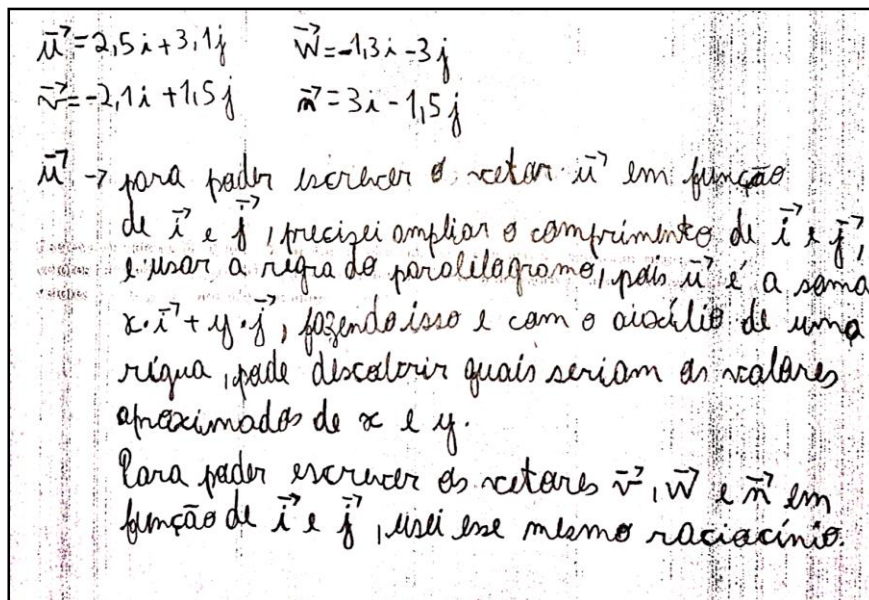 u⃗ = 2,5i + 3,1j   w⃗ = -1,3i - 3j
v⃗ = -2,1i + 1,5j   n⃗ = 3i - 1,5j
u⃗ → para poder escrever o vetor u⃗ em função
de i⃗ e j⃗, precisei ampliar o comprimento de i⃗ e j⃗,
e usar a regra do paralilogramo, pois u⃗ é a soma
x·i⃗ + y·j⃗, fazendo isso e com o auxílio de uma
régua, pode descobrir quais seriam os valores
aproximados de x e y.
Para poder escrever os vetores v⃗, w⃗ e n⃗ em
função de i⃗ e j⃗, usei esse mesmo raciocínio.